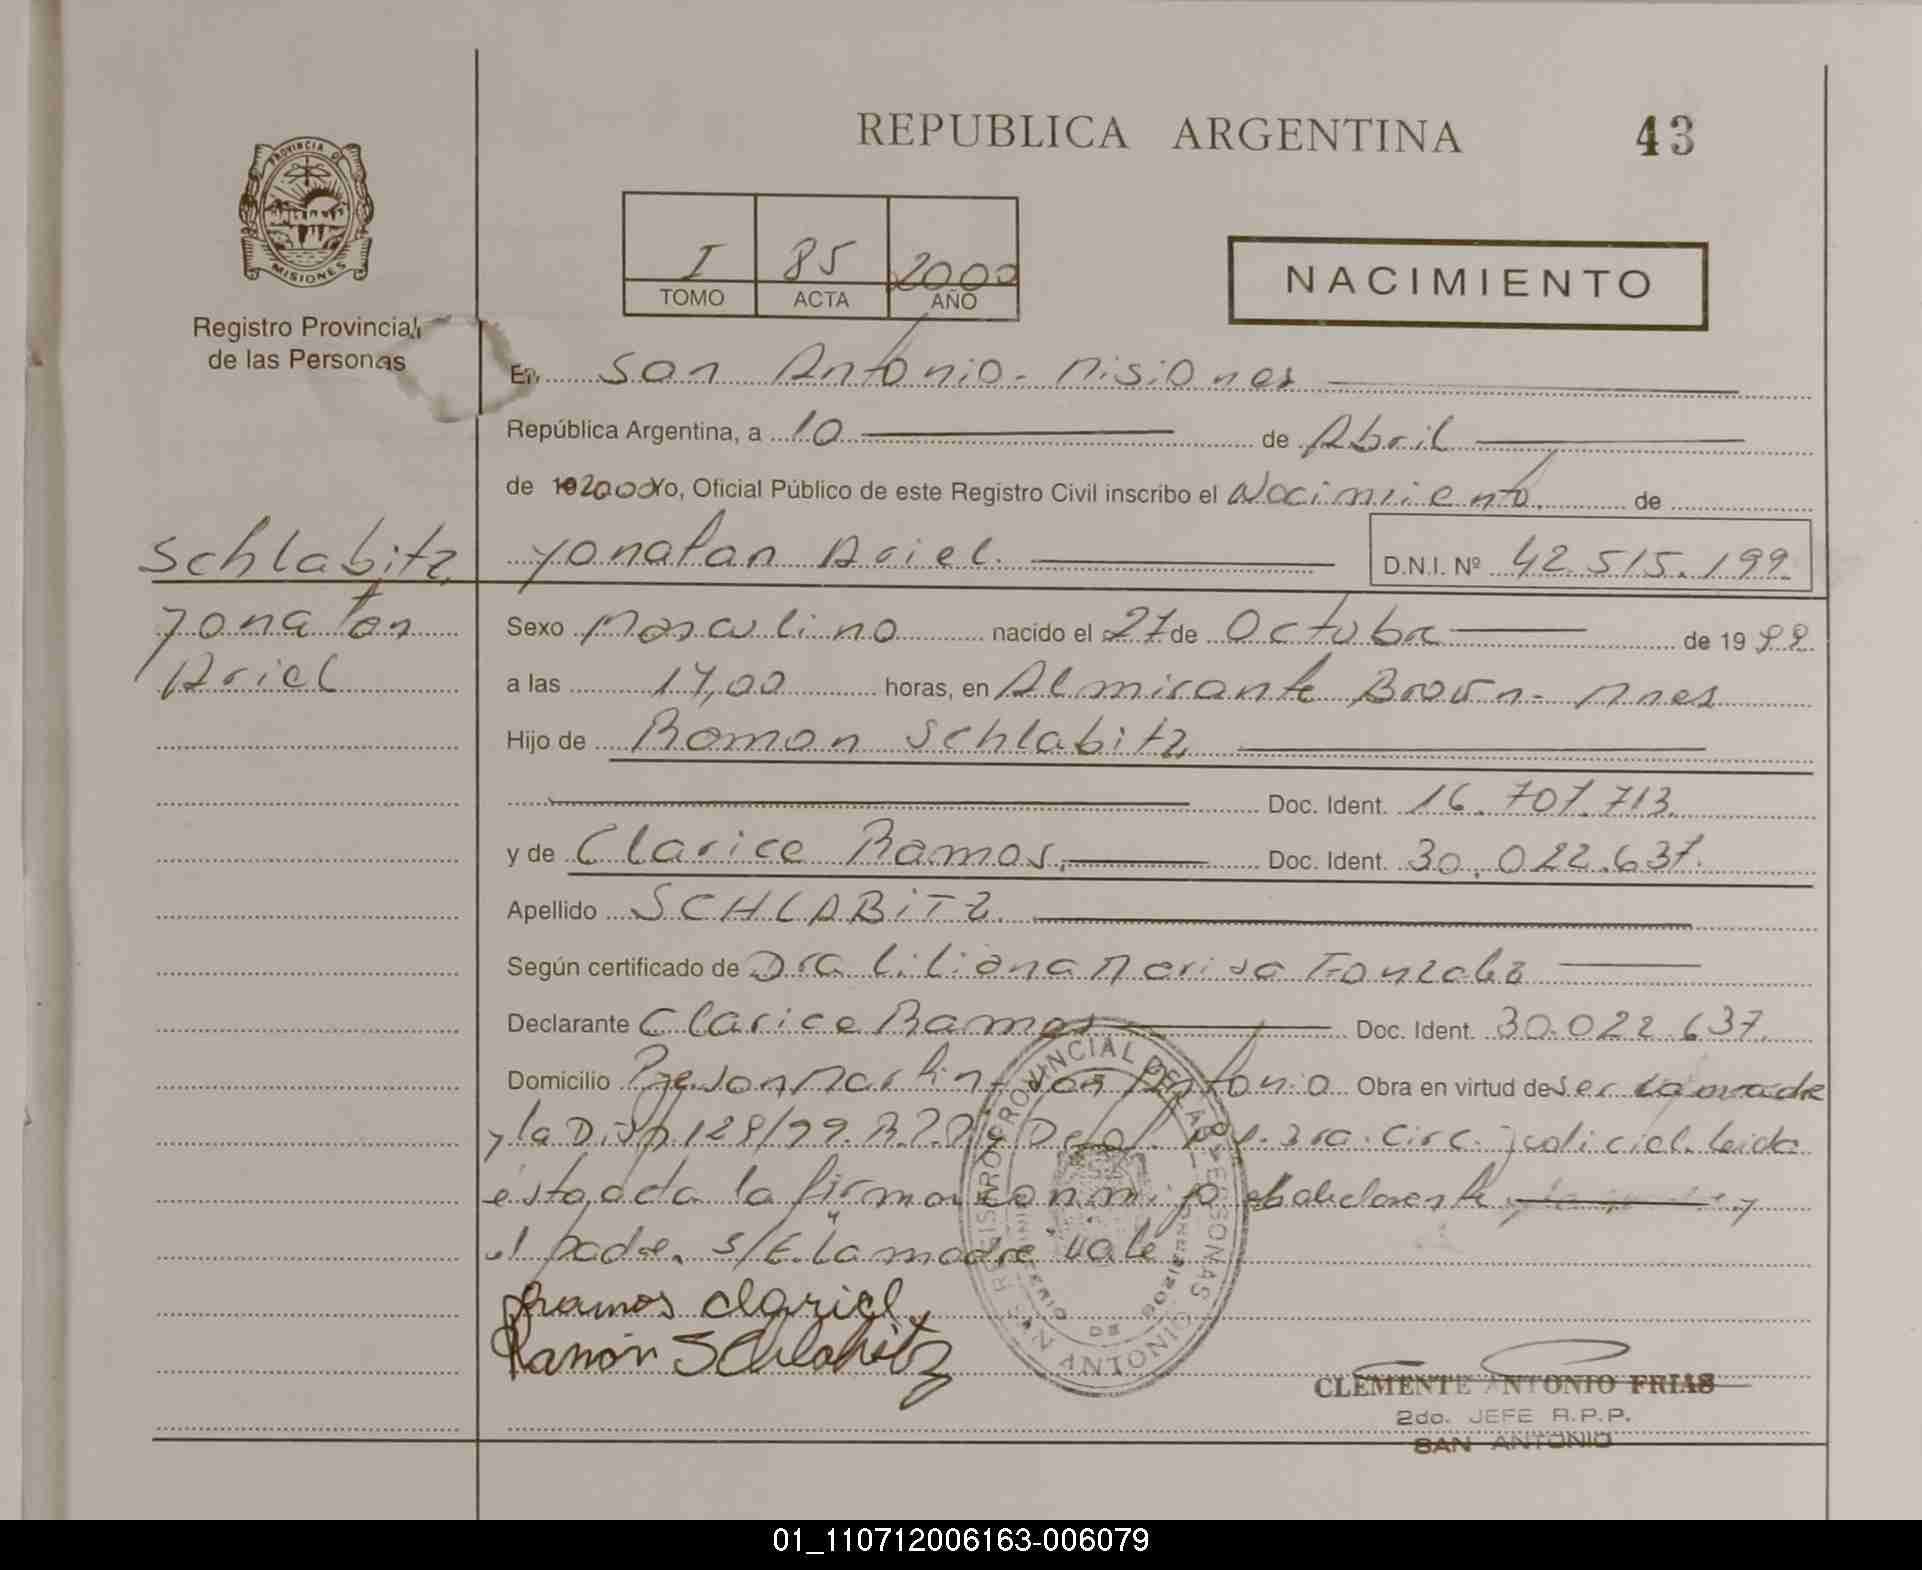 REPUBLICA ARGENTINA 43
PROVINCIA DE
MISIONES
Registro Provincial
de las Personas
I 85 2000
TOMO ACTA AÑO
NACIMIENTO
En San Antonio - Misiones
República Argentina, a 10 de Abril
de 2000 Yo, Oficial Público de este Registro Civil inscribo el Nacimiento de
Schlabitz Yonatan Ariel D.N.I. Nº 42.515.199
Yonatan Sexo Masculino nacido el 27 de Octubre de 1999
Ariel a las 17,00 horas, en Almirante Brown - Mnes
Hijo de Ramon Schlabitz
Doc. Ident. 16.707.713
y de Clarice Ramos Doc. Ident. 30.022.637
Apellido SCHLABITZ
Según certificado de Dra Liliana Marisa Gonzalez
Declarante Clarice Ramos Doc. Ident. 30.022.637
Domicilio San Antonio Obra en virtud de ser la madre
y la Disp. 128/99. R.P.P. 3ra. Circ. judicial. Leida
ésta acta la firman conmigo el declarante y
el padre. S/E. La madre vale
Ramos Clarice
Ramón Schlabitz
REGISTRO PROVINCIAL DE LAS PERSONAS
SAN ANTONIO
CLEMENTE ANTONIO FRIAS
2do. JEFE R.P.P.
SAN ANTONIO
01_110712006163-006079